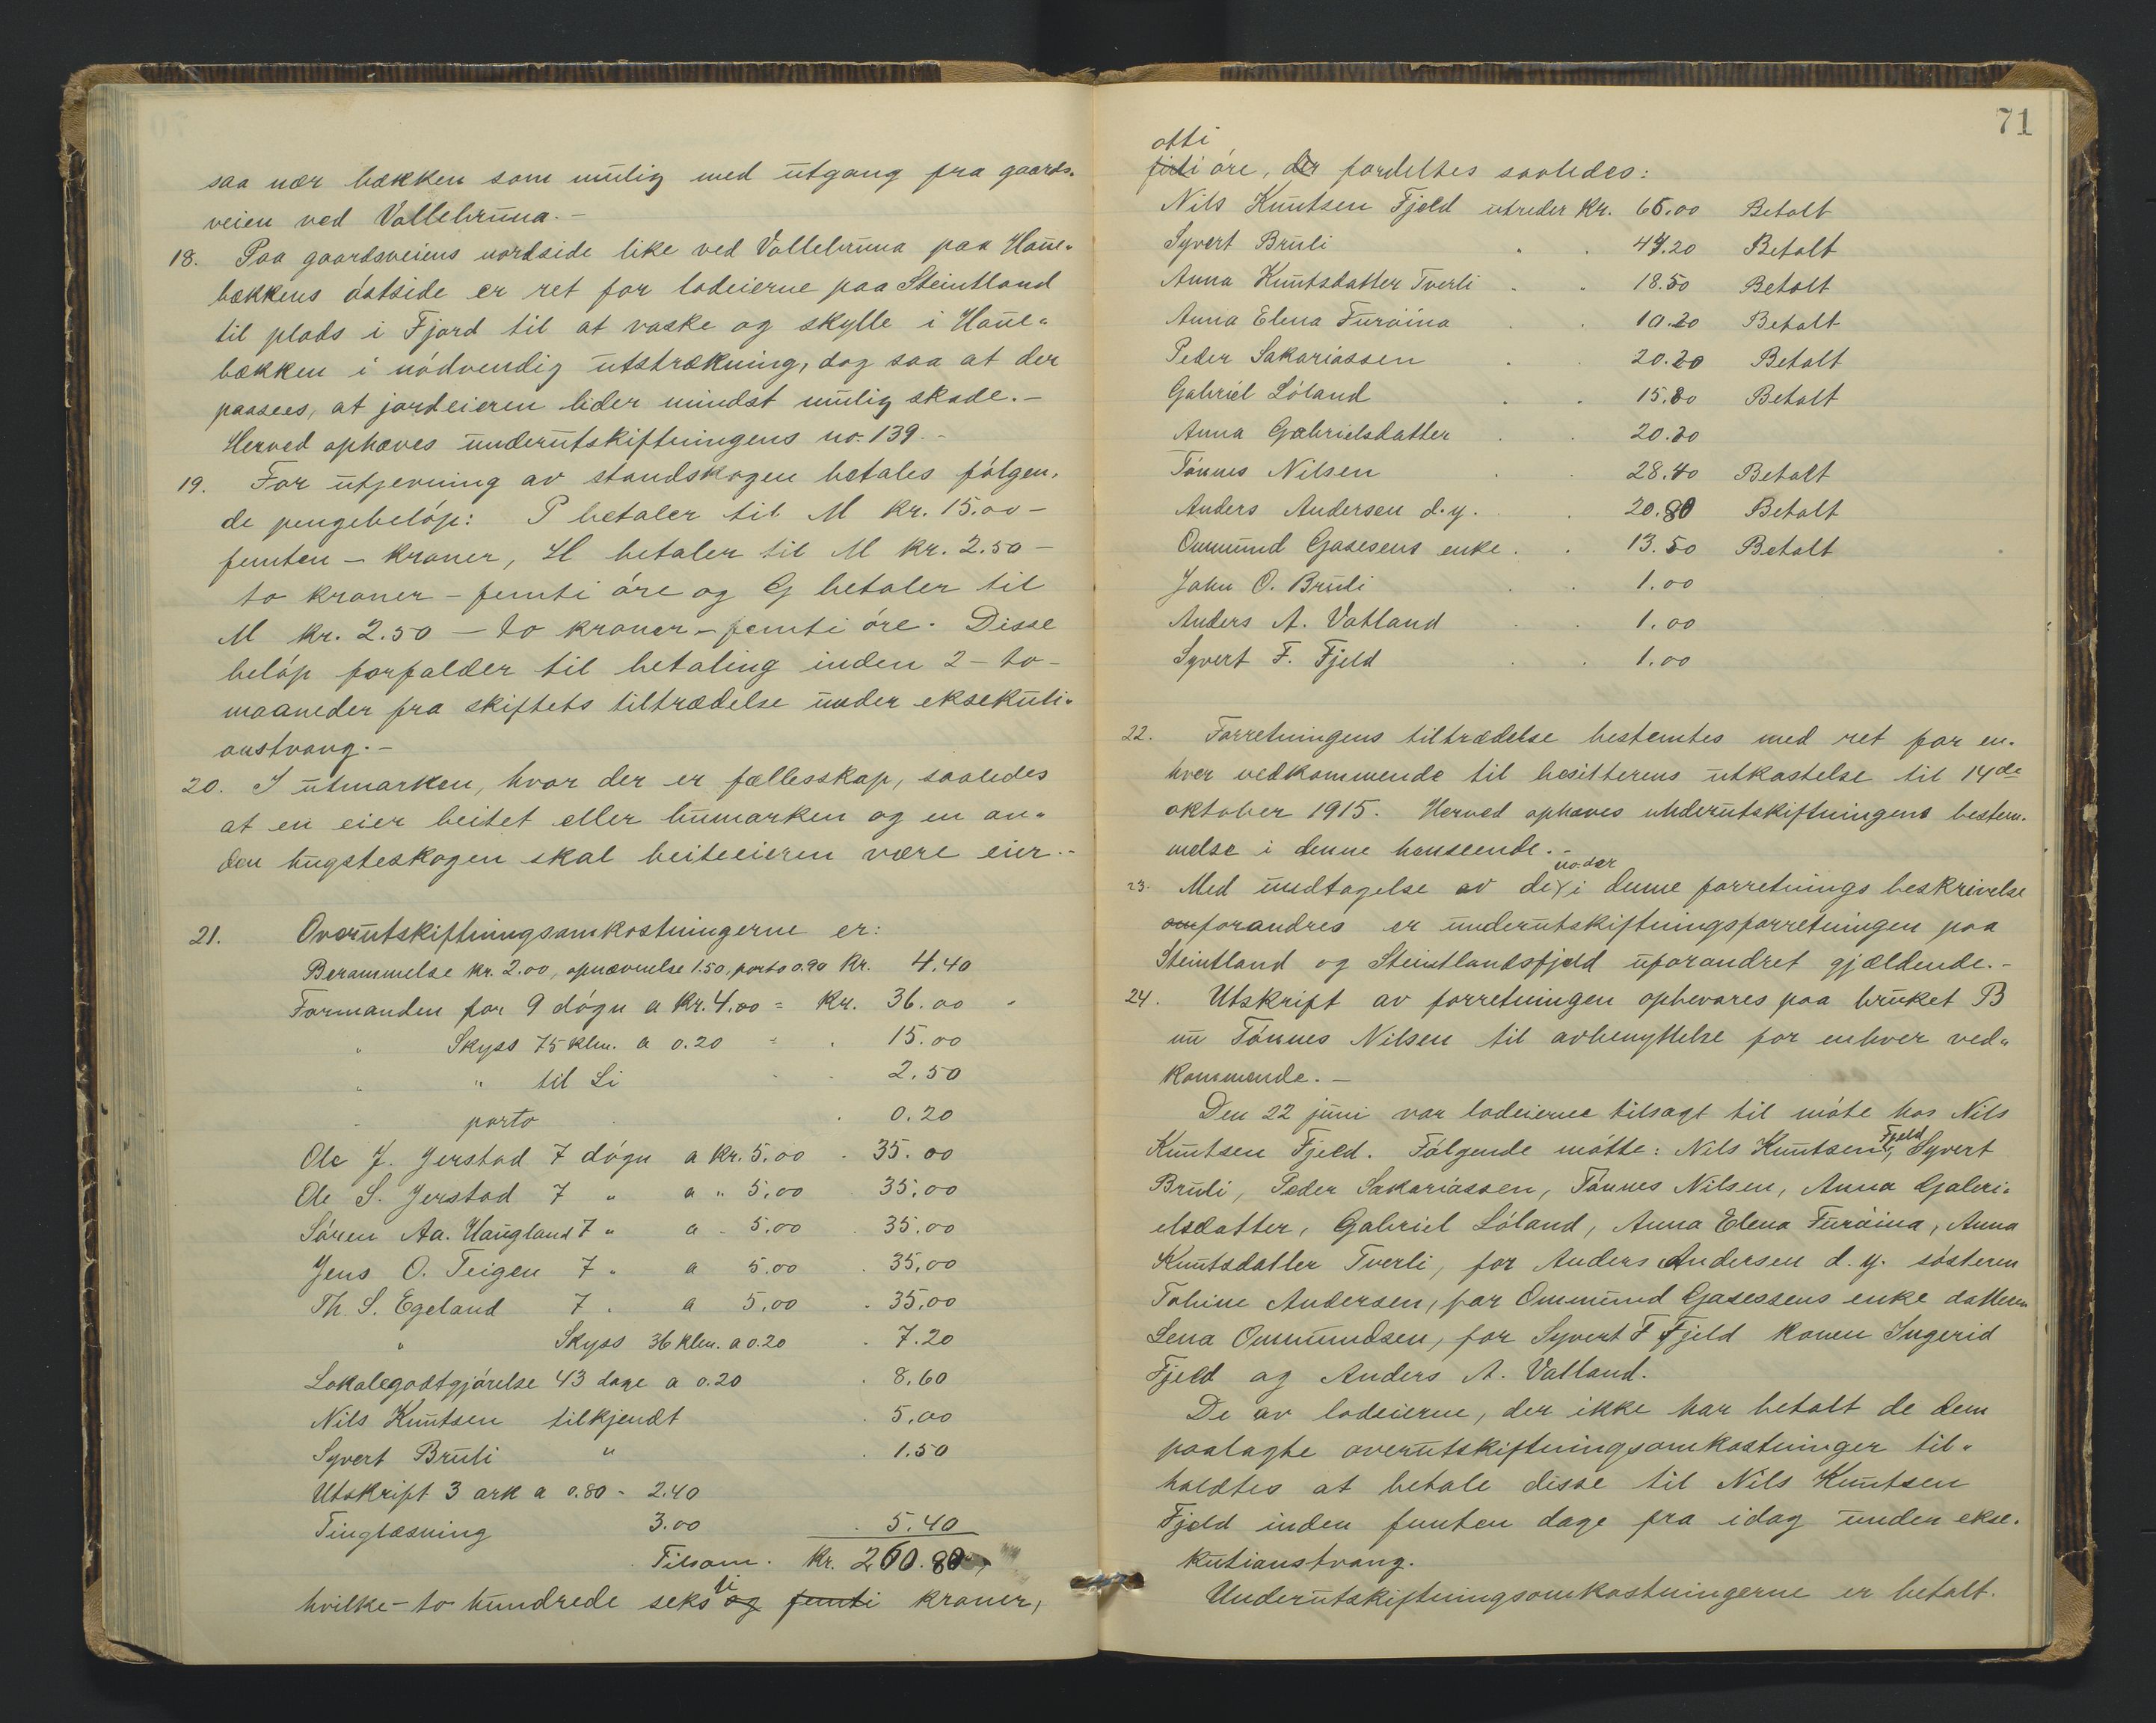 saa nær bækken som mulig med utgang fra gaards-
veien ved Vollebruna.-
18. Paa gaardsveiens nordside like ved Vollebruna paa Haue-
bækkens østside er ret for lodeierne paa Steintland
til plads i Fjord til at vaske og skylle i Haue-
bækken i nødvendig utstrækning, dog saa at der
paasees, at jordeieren lider mindst mulig skade.-
Herved ophæves underutskiftningens no. 139.-
19. For utjevning av standskogen betales følgen-
de pengebeløp: P betaler til M kr. 15.00 -
femten - kroner, H betaler til M kr. 2.50 -
to kroner - femti øre og G betaler til
M kr. 2.50 - to kroner - femti øre. Disse
beløp forfalder til betaling inden 2 - to -
maaneder fra skiftets tiltrædelse under eksekuti-
onstvang.-
20. I utmarken, hvor der er fællesskap, saaledes
at en eier beitet eller bumarken og en an-
den hugsteskogen skal beiteeieren være eier.-
21. Overutskiftningsomkostningerne er:
Berammelse kr. 2.00, opnævnelse 1.50, porto 0.90 kr. 4.40
Formanden for 9 døgn a kr. 4.00 = kr. 36.00
" Skyss 75 klm. a 0.20 = . 15.00
" " til Li . . 2.50
. porto . 0.20
Ole J. Jerstad 7 døgn a kr. 5.00 . 35.00
Ole S. Jerstad 7 " a " 5.00 . 35.00
Søren Aa. Haugland 7 " a . 5.00 . 35.00
Jens O. Teigen 7 " a 5.00 . 35.00
Th. S. Egeland 7 . a 5.00 . 35.00
" Skyss 36 klm. a 0.20 . 7.20
Lokalegodtgjørelse 43 dage a 0.20 . 8.60
Nils Knutsen tilkjendt . 5.00
Syvert Bruli " . 1.50
Utskrift 3 ark a 0.80 - 2.40
Tinglæsning 3.00 . 5.40
Tilsam. kr. 260.80
hvilke - to hundrede seksti og femti kroner,
71
otti
firti øre, der fordeltes saaledes:
Nils Knutsen Fjeld utreder kr. 65.00 Betalt
Syvert Bruli . . 44.20 Betalt
Anna Knutsdatter Tverli . . 18.50 Betalt
Anna Elena Furøina . . 10.20 Betalt
Peder Sakariassen . 20.20 Betalt
Gabriel Løland . . 15.80 Betalt
Anna Gabrielsdatter . . 20.20
Tønnes Nilsen . . 28.40 Betalt
Anders Andersen d.y. . 20.80 Betalt
Ommund Gasesens enke . . 13.50 Betalt
John O. Bruli . . 1.00
Anders A. Vatland . . 1.00
Syvert F. Fjeld . . 1.00
22. Forretningens tiltrædelse bestemtes med ret for en-
hver vedkommende til besitterens utkastelse til 14de
oktober 1915. Herved ophæves underutskiftningens bestem-
melse i denne henseende.-
23. Med undtagelse av de no. der i denne forretnings beskrivelse
omforandres er underutskiftningsforretningen paa
Steintland og Steintlandsfjeld uforandret gjældende.-
24. Utskrift av forretningen opbevares paa bruket B
nu Tønnes Nilsen til avbenyttelse for enhver ved-
kommende.-
Den 22 juni var lodeierne tilsagt til møte hos Nils
Knutsen Fjeld. Følgende møtte: Nils Knutsen Fjeld, Syvert
Bruli, Peder Sakariassen, Tønnes Nilsen, Anna Gabri-
elsdatter, Gabriel Løland, Anna Elena Furøina, Anna
Knutsdatter Tverli, for Anders Andersen d.y. søsteren
Tobine Andersen, for Ommund Gasessens enke datteren
Lena Ommundsen, for Syvert F Fjeld konen Ingerid
Fjeld og Anders A. Vatland.
De av lodeierne, der ikke har betalt de dem
paalagte overutskiftningsomkostninger til-
holdtes at betale disse til Nils Knutsen
Fjeld inden femten dage fra idag under ekse-
kutionstvang.
Underutskiftningsomkostningerne er betalt.